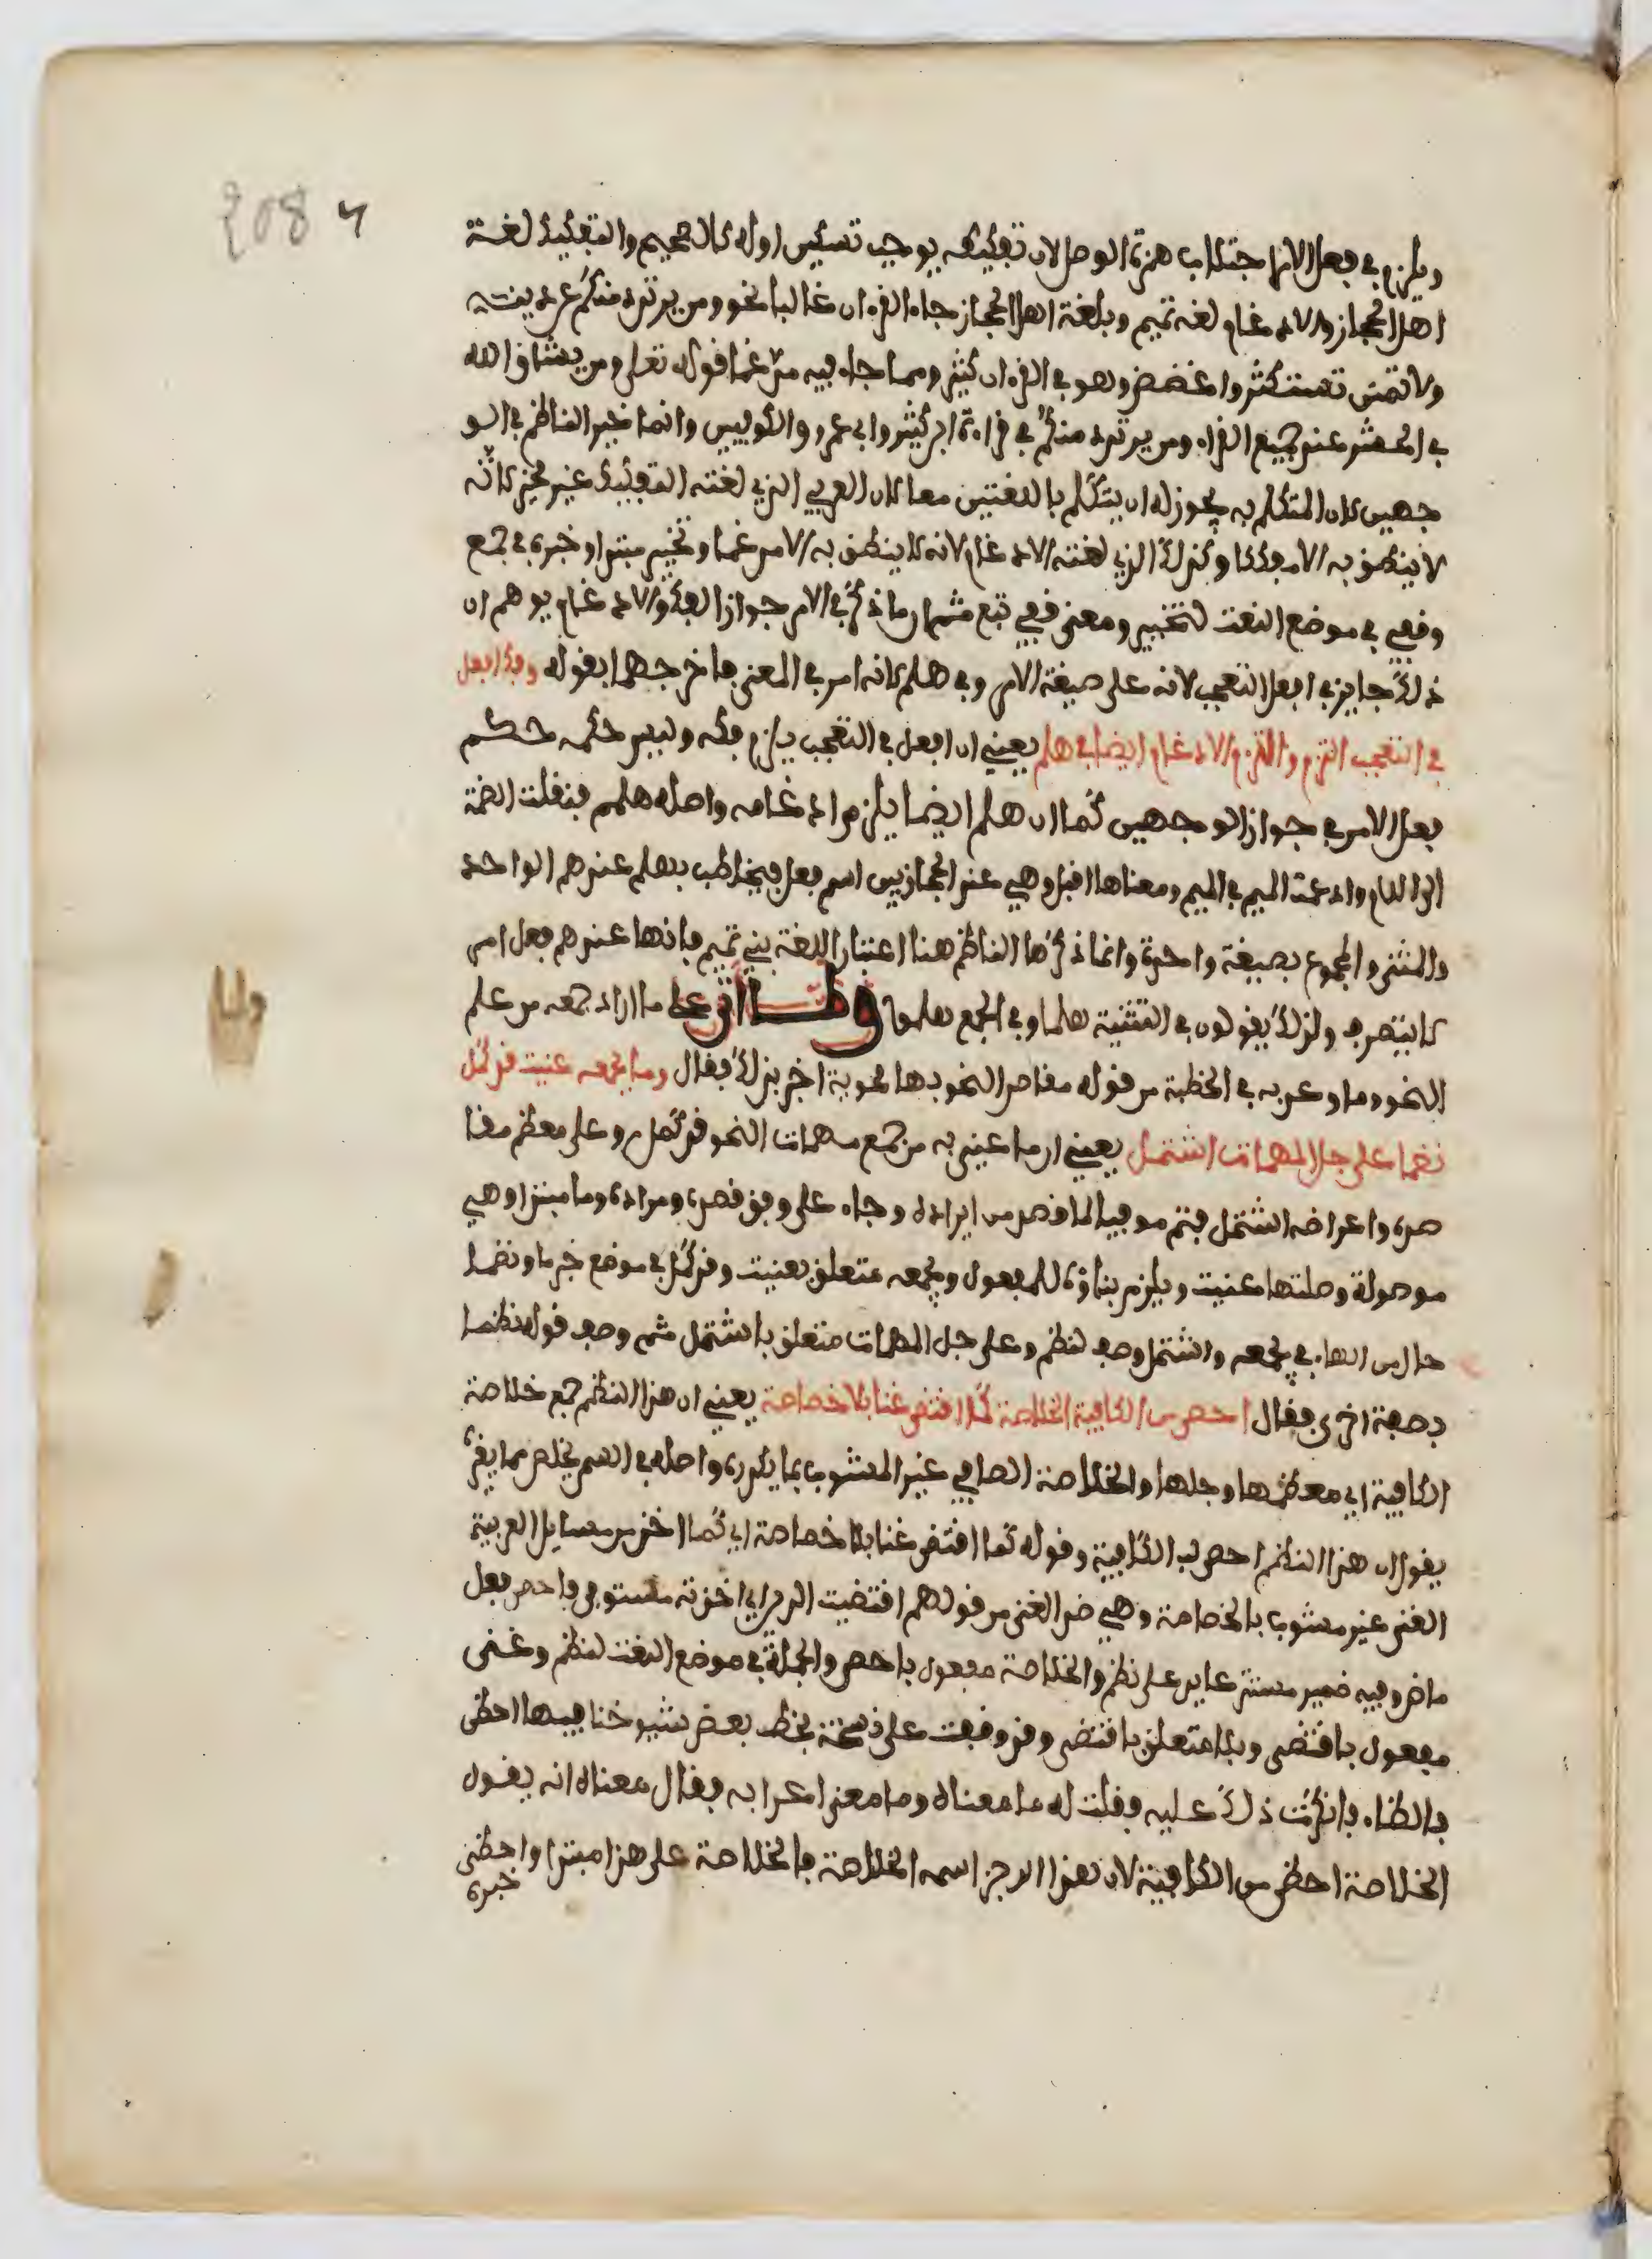 208 ٧
ويلزم في فعل الامر اجتلاب همزة الوصل لان تفكيكه يوجب تسكين اوله كالصحيح والتفكيك لغة
اهل الحجاز والادغام لغة تميم وبلغة اهل الحجاز جاء القرءان غالبا نحو ومن يرتدد منكم عن دينه
ولا تمنن تستكثر واغضض وهو في القرءان كثير ومما جاء فيه مدغما قوله تعلى ومن يشاق الله
في الحشر عند جميع القراء ومن يرتد منكم في قراءة ابن كثير وابي عمرو والكوفيين وانما خير الناظم في الو
جهين لان المتكلم به يجوز له ان يتكلم باللغتين معا لان العربي الذي لغته التفكيك غير مخير لانه
لا ينطق به الا مفككا وكذلك الذي لغته الادغام لانه لا ينطق به الا مدغما وتخيير مبتدا وخبره في جمع
وقفي في موضع النعت لتخيير ومعنى قفي تبع ثم لما ذكر في الامر جواز الفك والادغام يوهم ان
ذلك جايز في افعل التعجب لانه على صيغة الامر وفي هلم لانه امر في المعنى فاخرجهما بقوله وفك افعل
في التعجب التزم والتزم الادغام ايضا في هلم يعني ان افعل في التعجب يلزم فكه وليس حكمه حكم
فعل الامر في جواز الوجهين كما ان هلم ايضا يلزم ادغامه واصله هلمم فنقلت الضمة
الى اللام وادغمت الميم في الميم ومعناها اقبل وهي عند الحجازيين اسم فعل فيخاطب بهلم عندهم الواحد
والمثنى والمجموع بصيغة واحدة وانما ذكرها الناظم هنا اعتبارا للغة بني تميم فانها عندهم فعل امر
لا يتصرف ولذلك يقولون في التثنية هلما وفي الجمع هلموا ولما اتى على ما اراد جمعه من علم
النحو وما وعد به في الخطبة من قوله مقاصد النحو بها محوية اخبر بذلك فقال وما بجمعه عنيت قد كمل
نظما على جل المهمات اشتمل يعني ان ما عني به من جمع مهمات النحو قد كمل وعلى معظم مقا
صده واغراضه اشتمل فتم موفيا لما قصد من ايراده وجاء على وفق قصده ومراده وما مبتدا وهي
موصولة وصلتها عنيت ويلزم بناؤه للمفعول وبجمعه متعلق بعنيت وقد كمل في موضع خبر ما ونظما
حال من الهاء في بجمعه واشتمل وصف لنظم وعلى جل المهمات متعلق باشتمل ثم وصف قوله نظما
بصفة اخرى فقال احصى من الكافية الخلاصة كما اقتضى غنا بلا خصاصة يعني ان هذا النظم جمع خلاصة
الكافية اي معظمها وجلها والخلاصة الصافي غير المشوب بما يكدره واصله في السمن يخلص مما يغيره
يقول ان هذا النظم احصى لب الكافية وقوله كما اقتضى غنا بلا خصاصة اي كما اخذ من مسايل العربية
الغنى غير مشوب بالخصاصة وهي ضد الغنى من قولهم اقتضيت الدين اي اخذته مستوفى واحصى فعل
ماض وفيه ضمير مستتر عايد على نظم والخلاصة مفعول باحصى والجملة في موضع النعت لنظم وغنى
مفعول باقتضى وبلا متعلق باقتضى وقد وقفت على نسخة بخط بعض شيوخنا فيها احظى
بالظاء فانكرت ذلك عليه وقلت له ما معناه وما معنى اعرابه فقال معناه انه يقول
الخلاصة احظى من الكافية لان هذا الرجز اسمه الخلاصة فالخلاصة على هذا مبتدا واحظى
خبره